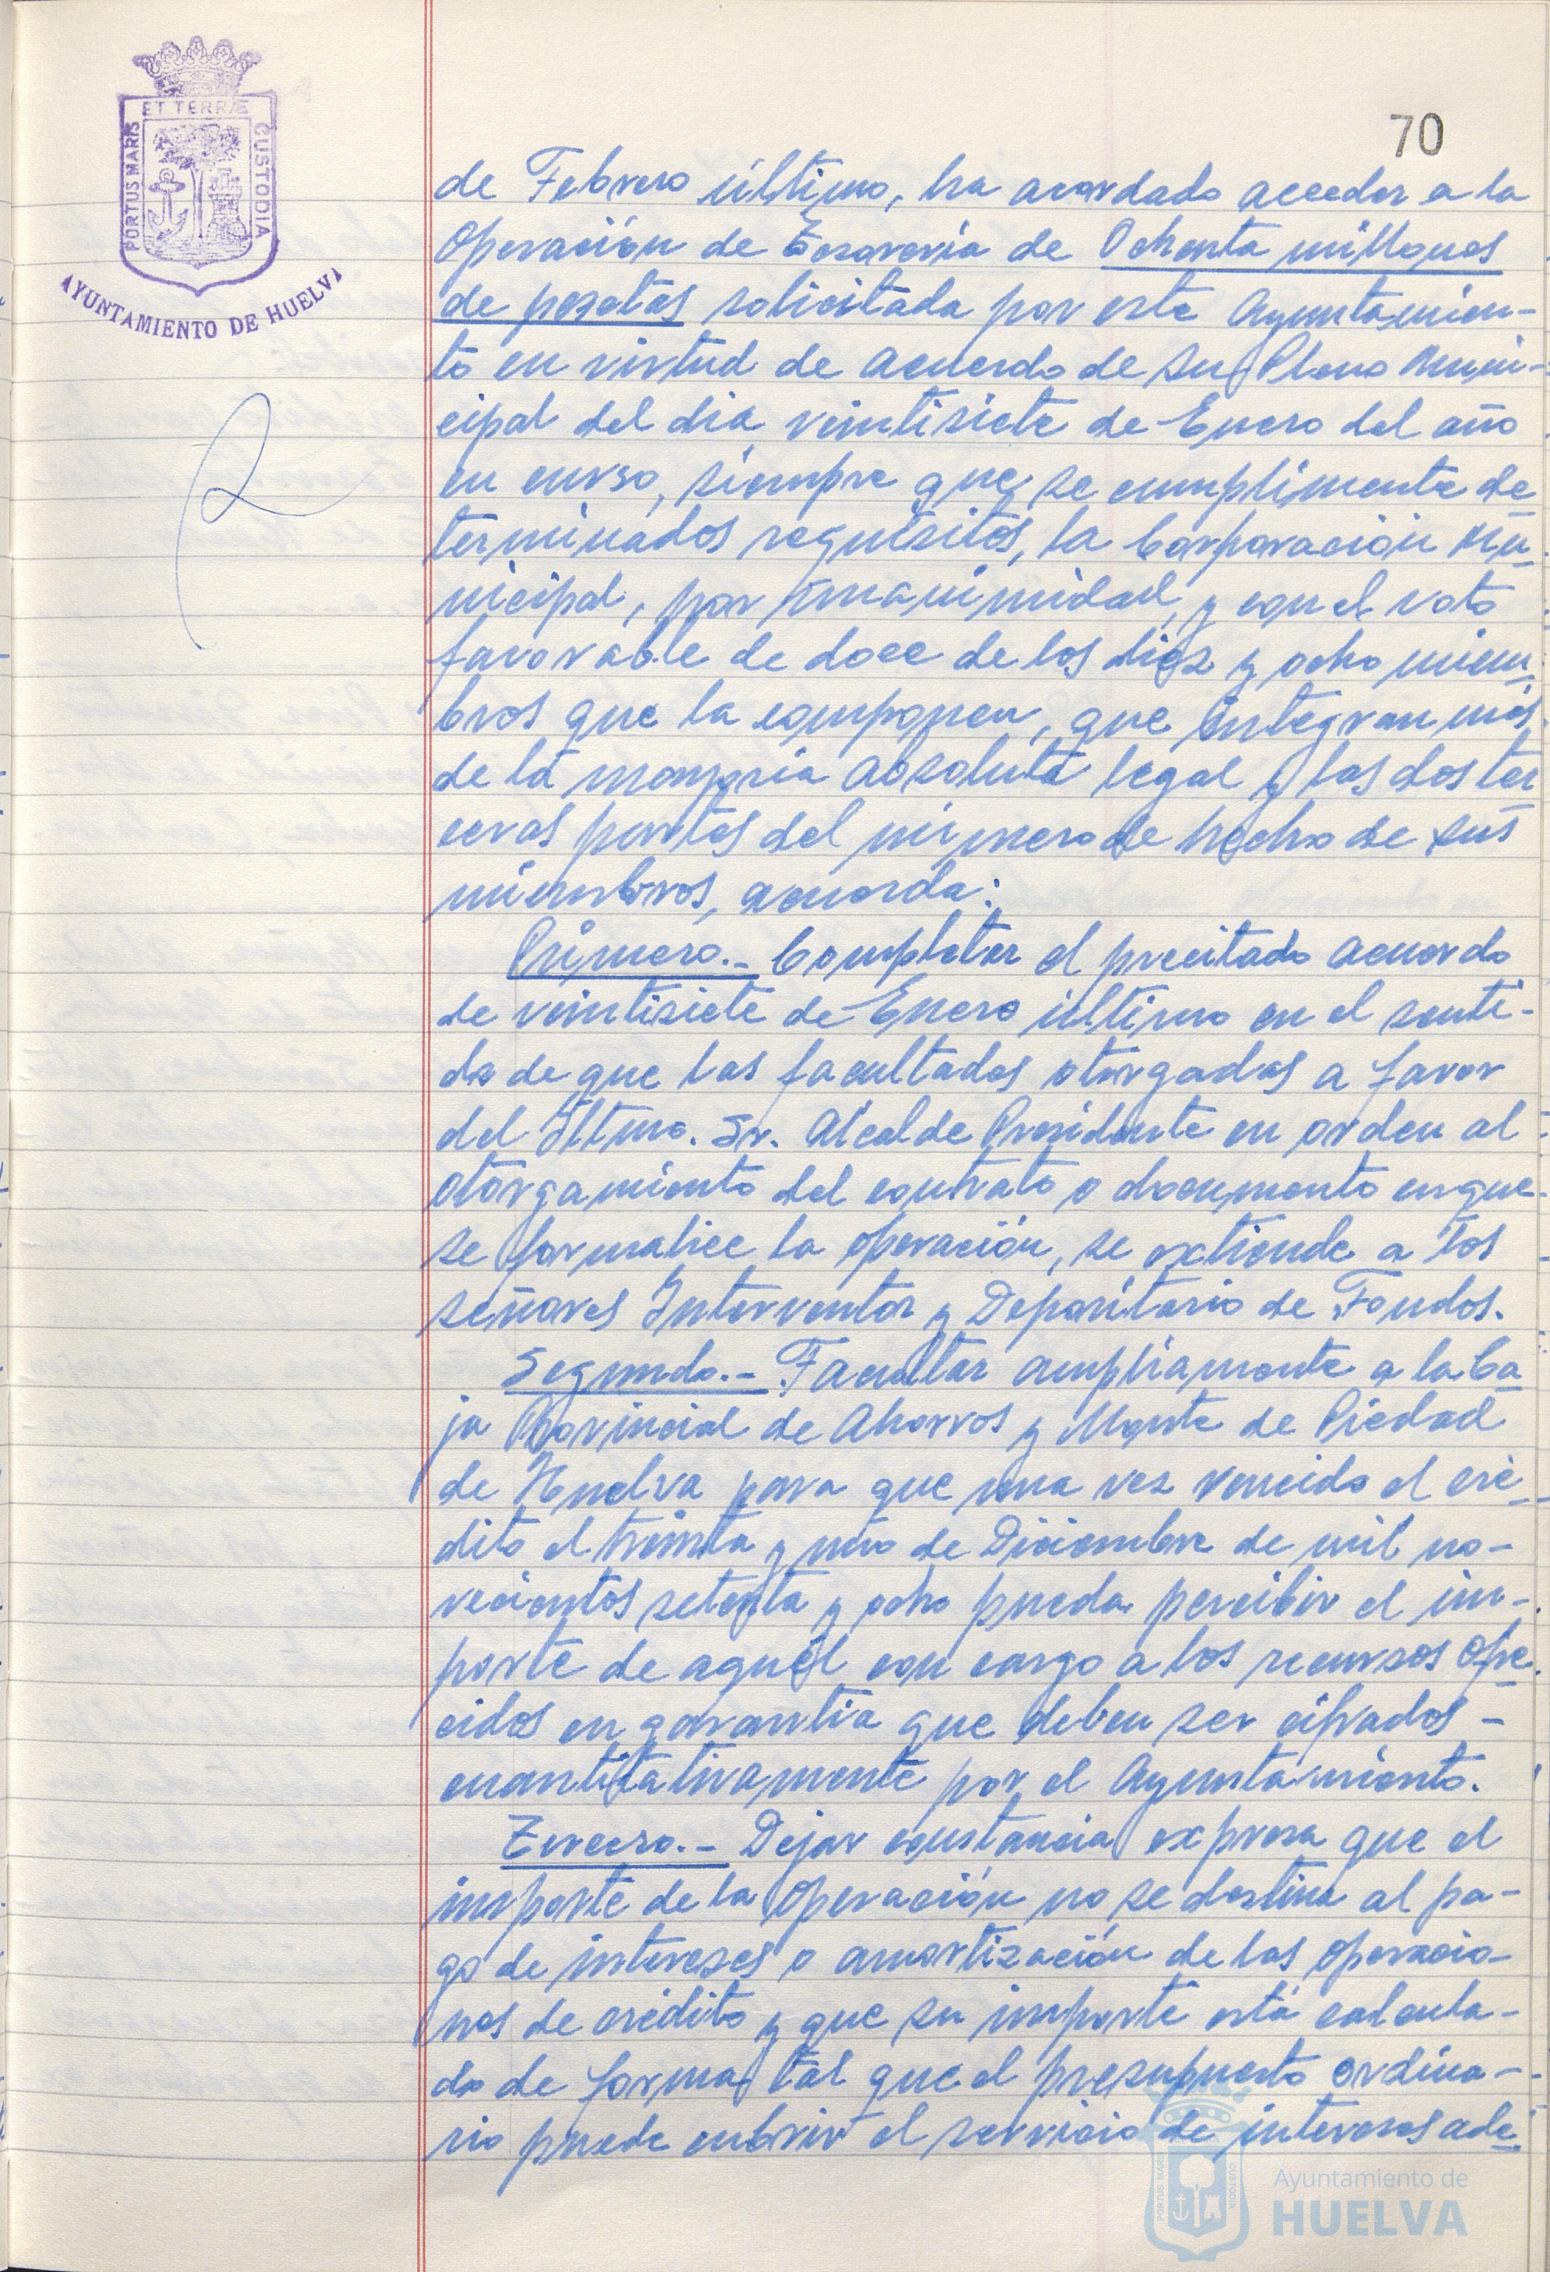 70
ET TERRÆ
PORTUS MARIS
CUSTODIA
AYUNTAMIENTO DE HUELVA
de Febrero último, ha acordado acceder a la
Operación de Tesorería de Ochenta millones
de pesetas solicitada por este Ayuntamien-
to en virtud de acuerdo de su Pleno Muni-
cipal del dia veintisiete de Enero del año
en curso, siempre que se cumplimente de
terminados requisitos, la Corporación Mu
nicipal, por unanimidad, y con el voto
favorable de doce de los diez y ocho miem
bros que la componen, que integran más
de la mayoría absoluta legal y las dos ter
ceras partes del número de hecho de sus
miembros, acuerda:
Primero.- Completar el precitado acuerdo
de veintisiete de Enero último en el senti-
do de que las facultades otorgadas a favor
del Iltmo. Sr. Alcalde Presidente en orden al
otorgamiento del contrato o documento en que
se formalice la operación, se extiende a los
señores Interventor y Depositario de Fondos.
Segundo.- Facultar ampliamente a la Ca
ja Provincial de Ahorros y Monte de Piedad
de Huelva para que una vez vencido el cré-
dito el treinta y uno de Diciembre de mil no-
vecientos setenta y ocho pueda percibir el im-
porte de aquél con cargo a los recursos ofre
cidos en garantía que deben ser cifrados -
cuantitativamente por el Ayuntamiento.
Tercero.- Dejar constancia expresa que el
importe de la Operación no se destina al pa-
go de intereses o amortización de las operacio-
nes de crédito y que su importe está calcula-
do de forma tal que el presupuesto ordina-
rio puede cubrir el servicio de intereses ade
Ayuntamiento de
HUELVA